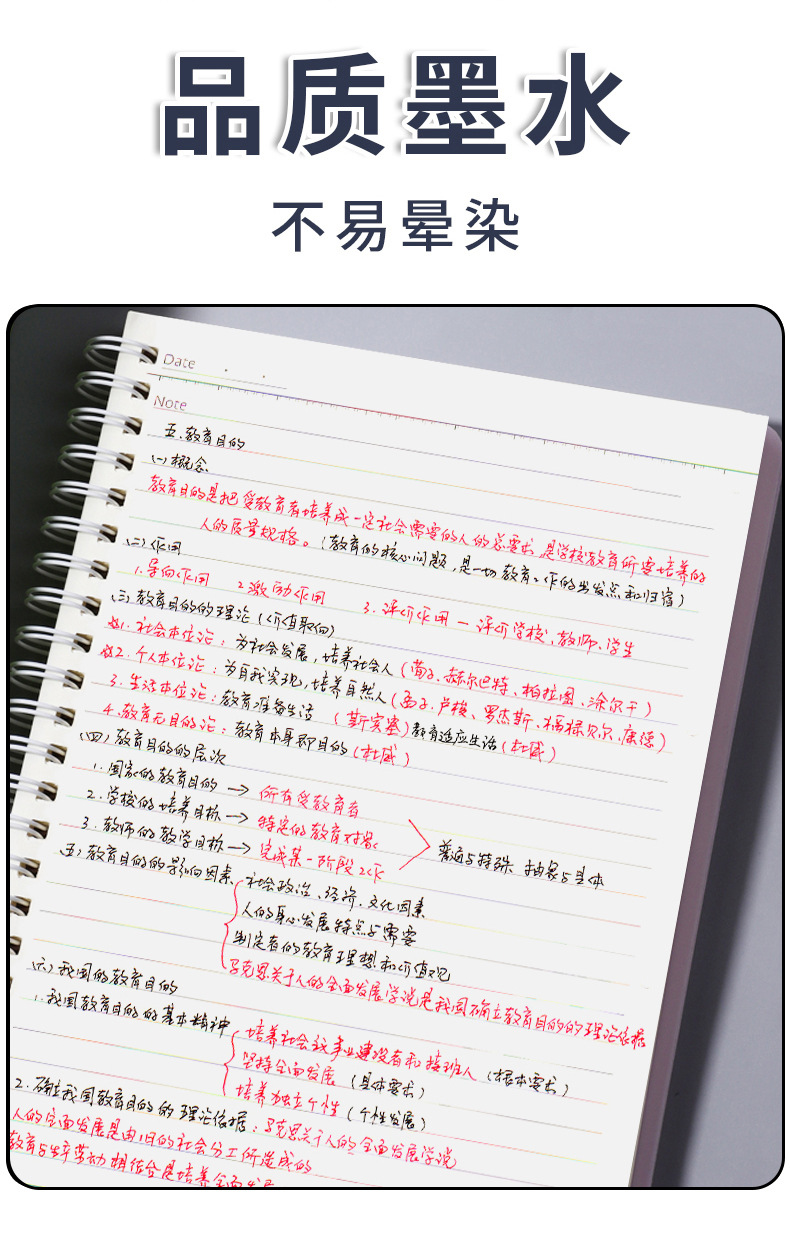 品质墨水
不易晕染
Date . .
Note
五.教育目的
(一)概念
教育目的是把受教育者培养成一定社会需要的人的总要求,是学校教育所要培养的
人的质量规格。(教育的核心问题,是一切教育工作的出发点和归宿)
(二)作用
1.导向作用 2激励作用 3.评价作用 — 评价学校、教师、学生
(三)教育目的的理论(价值取向)
1.社会本位论:为社会发展,培养社会人(荀子、赫尔巴特、柏拉图、涂尔干)
2.个人本位论:为自我实现,培养自然人(孟子、卢梭、罗杰斯、福禄贝尔、康德)
3.生活本位论:教育准备生活 (斯宾塞)教育适应生活(杜威)
4.教育无目的论:教育本身即目的(杜威)
(四)教育目的的层次
1.国家的教育目的 → 所有受教育者
2.学校的培养目标 → 特定的教育对象
3.教师的教学目标 → 完成某一阶段工作
普遍与特殊 抽象与具体
(五)教育目的的影响因素
社会政治、经济、文化因素
人的身心发展特点与需要
制定者的教育理想和价值观
马克思关于人的全面发展学说是我国确立教育目的的理论依据
(六)我国的教育目的
1.我国教育目的的基本精神
培养社会主义事业建设者和接班人(根本要求)
坚持全面发展(具体要求)
培养独立个性(个性发展)
2.确立我国教育目的的理论依据:马克思关于人的全面发展学说
人的全面发展是由旧的社会分工所造成的
教育与生产劳动相结合是培养全面发展